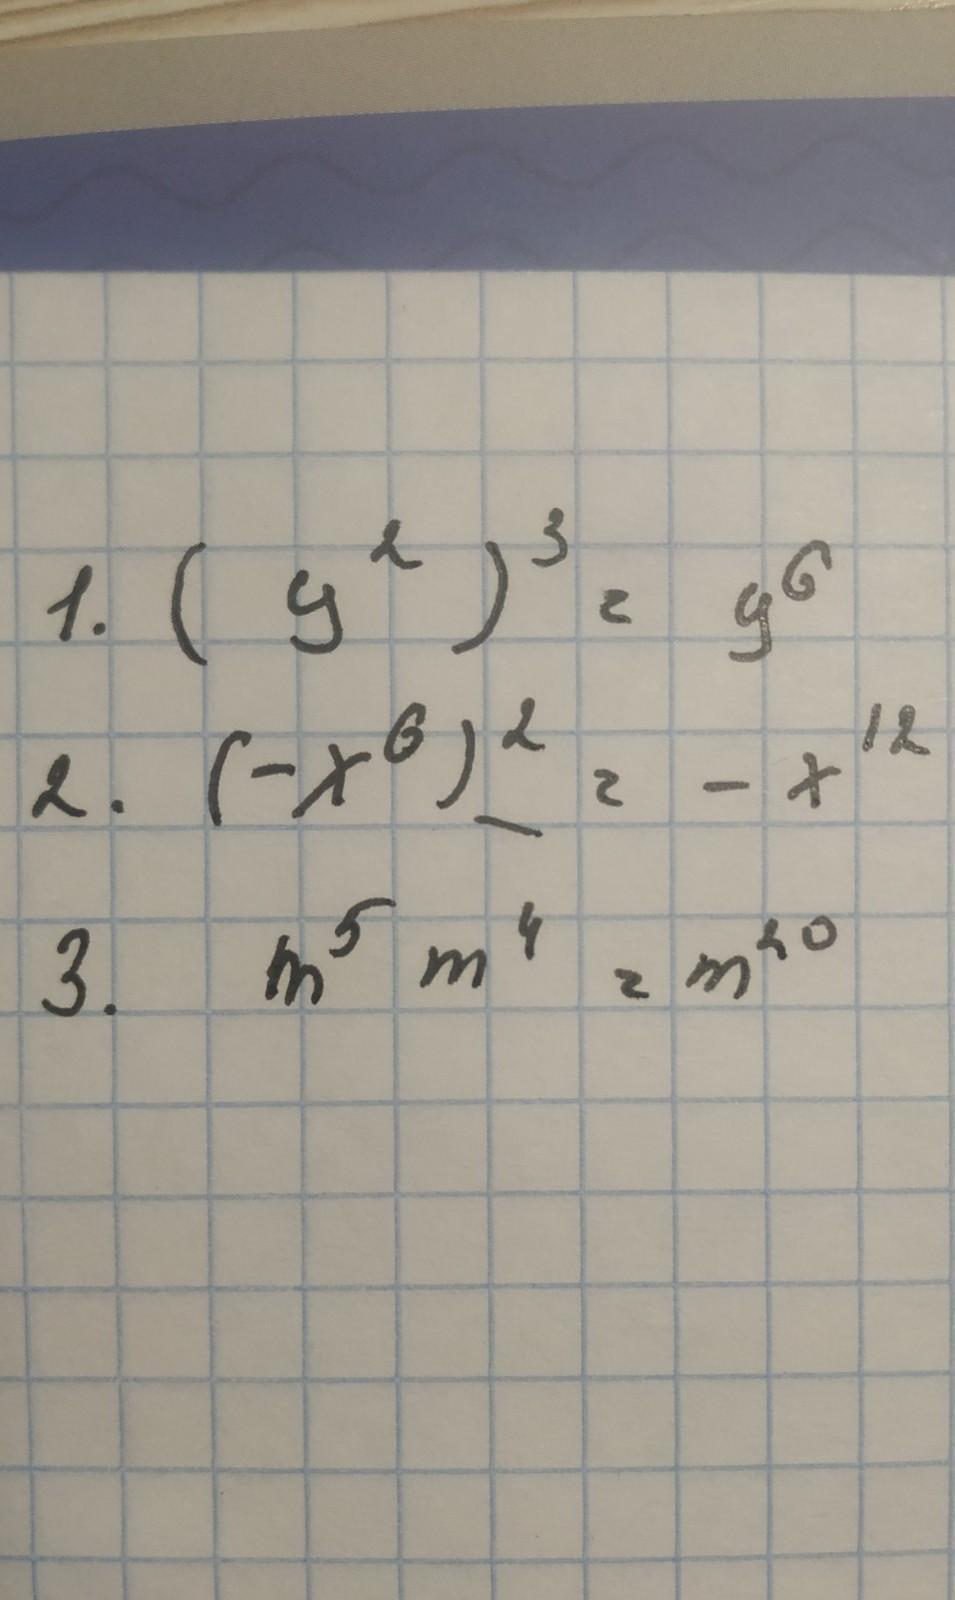 1. (y²)³ = y⁶
2. (-x⁶)² = -x¹²
3. m⁵ m⁴ = m²⁰